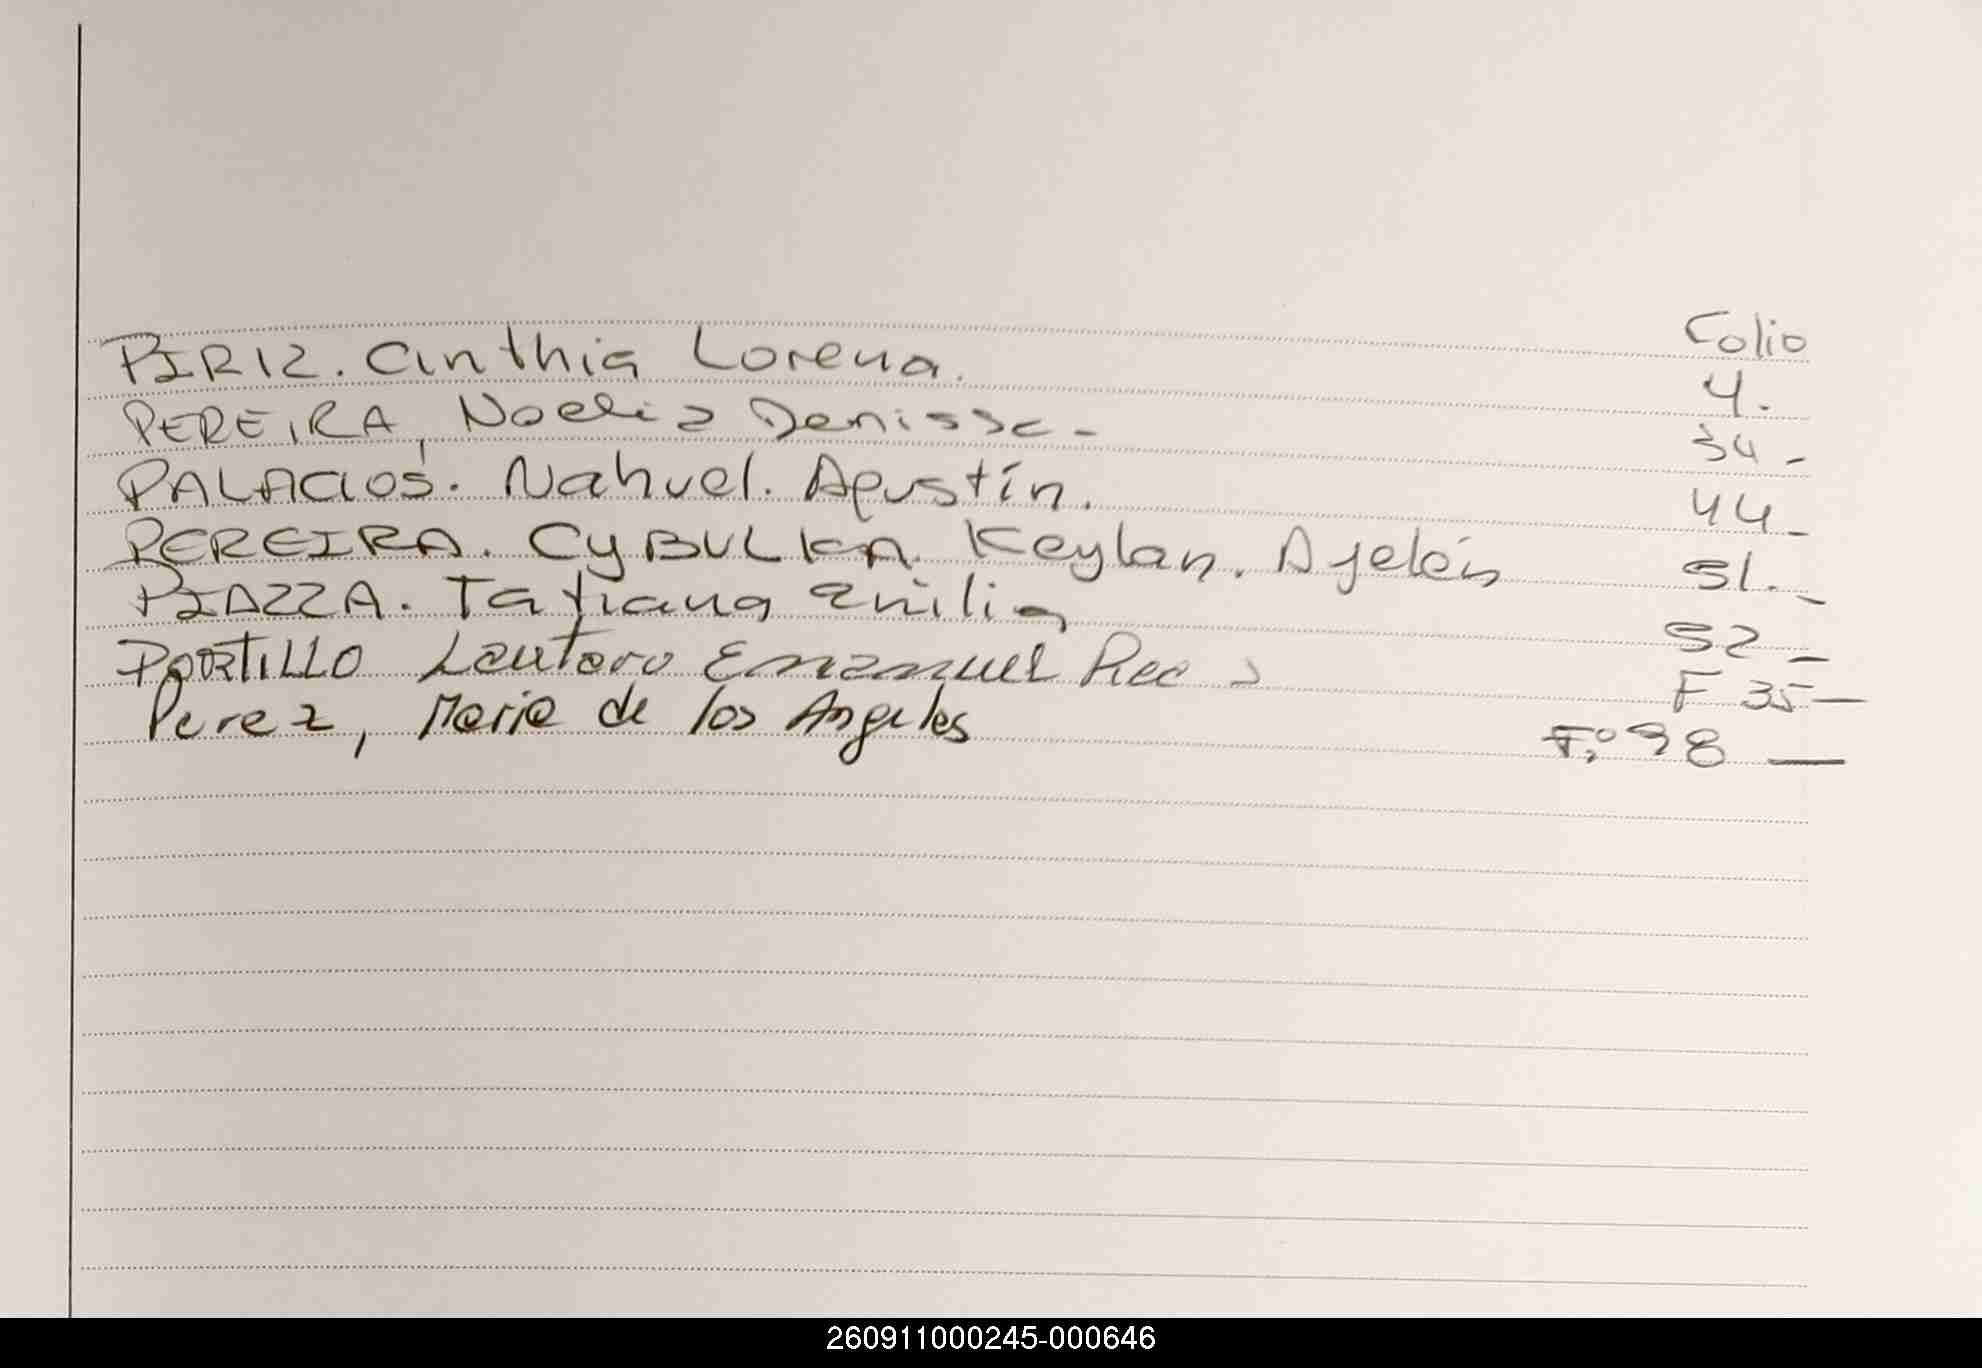 Folio
PIRIZ. Cinthia Lorena. 4.
PEREIRA, Noelia Denisse - 34 -
PALACIOS. Nahuel. Agustín. 44 -
PEREIRA. CYBULKA. Keylan. Ayelén 51. -
PIAZZA. Tatiana Emilia 52 -
PORTILLO Lautaro Emanuel Rec F 35 -
Perez, Maria de los Angeles Fº 98 -
260911000245-000646